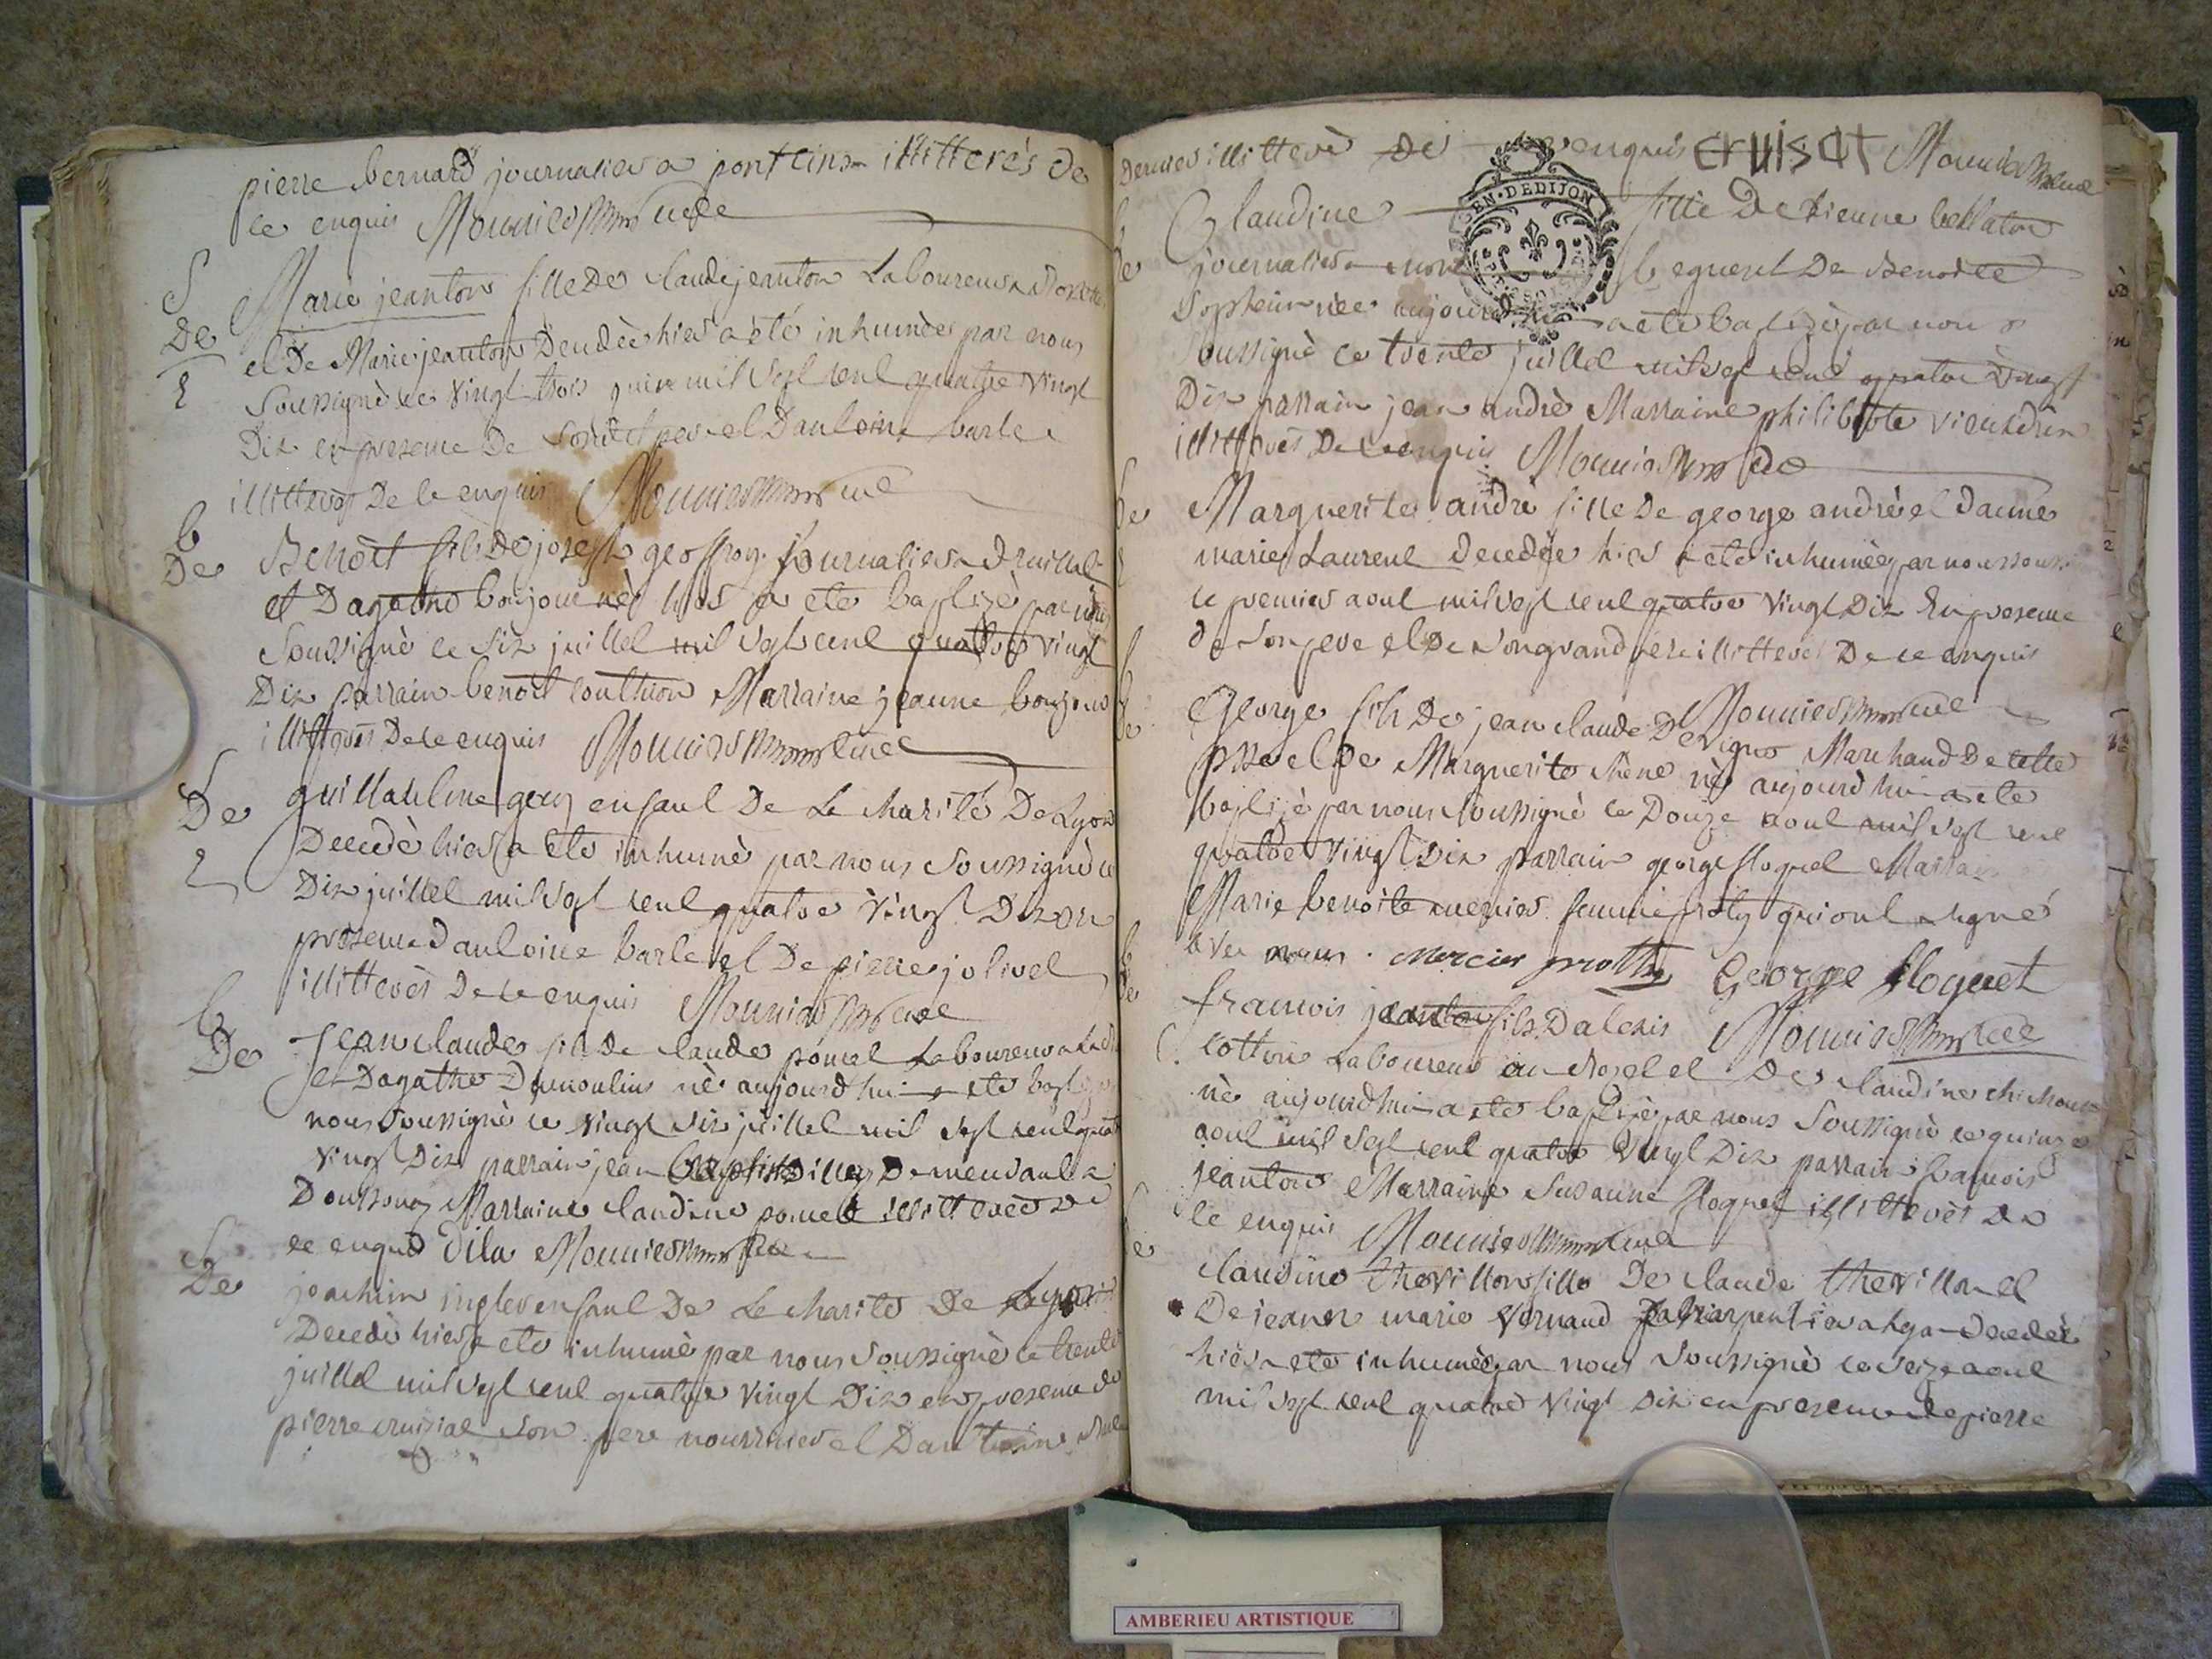 pierre bernard journalier a ponteins illitterés de
ce enquis Mounier curé
S Marie jeanton fille De claude jeanton Laboureur a
De et De Marie jeanton Decedèe hier a èté inhumèe par nous
Soussignè ce vingt trois mil sept cent quatre vingt
Dix en presence De et Dantoine barle
illitterès De ce enquis Mounier curé
b
De Benoit fils De joseph geoffray journalier a Druillat
et Dagathe bonjour nè hier a ete baptizè par nous
Soussignè ce six juillet mil sept cent quatre vingt
Dix parrain benoit couthion Marraine jeanne bonjour
illitterès De ce enquis Mounier curé
S
De guillaulme enfant De Le charité De Lyon
Decedè hier a ete inhumè par nous Soussignè ce
Dix juillet mil sept cent quatre vingt Dix en
prèsence dantoine barle et De pierre jolivet
illitterès De ce enquis Mounier curé
b
De Jean claude fils De claude poncet Laboureur a
et Dagathe Dumoulin nè aujourdhui a ete baptizè
nous Soussignè ce vingt six juillet mil sept cent quatre
vingt Dix parrain jean baptiste Dilla
Marraine claudine poncet illitterèe De
ce enquis Dila Mounier curé
S
De joachim enfant De Le charite De Lyon
Decedè hier a ete inhumè par nous Soussignè ce trente
juillet mil sept cent quatre vingt Dix en presence de
pierre cruisiat son pere nourricier et Dantoine
Dernier illitterè De enquis cruisat Mounier curé
Claudine fille Detienne bellaton
journalier a et De Benoite
nèe aujourdhui a ete baptizèe par nous
soussignè ce trente juillet mil sept cent quatre vingt
Dix parrain jean andrè Marraine philiberte
illitterès De ce enquis Mounier curé
Marguerite andrè fille De george andrè et danne
marie Laurent decedèe hier a ete inhumèe par nous sous
ce premier aout mil sept cent quatre vingt Dix En presence
de Son pere et De Son grand pere illitterès De ce enquis
Mounier curé
George fils De jean claude Devigne Marchand De cette
psse et De Marguerite nè aujourdhui a ete
baptizè par nous Soussignè ce Douze aout mil sept cent
quatre vingt Dix parrain george floquet Marraine
Marie benoite mercier femme proty qui ont signé
avec nous . mercier prothy George floquet
francois jeanton fils Dalexis Mounier curé
cottin Laboureur au et De claudine
nè aujourdhui a ete baptizè par nous Soussignè ce quinze
aout mil sept cent quatre vingt Dix parrain francois
jeanton Marraine Susanne floquet illitterès De
ce enquis Mounier curé
claudine thevillon fille De claude thevillon et
De jeanne marie vernaud decedèe
hier a ete inhumèe par nous Soussignè ce seize aout
mil sept cent quatre vingt Dix en presence de pierre
GEN·DEDIJON
AMBERIEU ARTISTIQUE